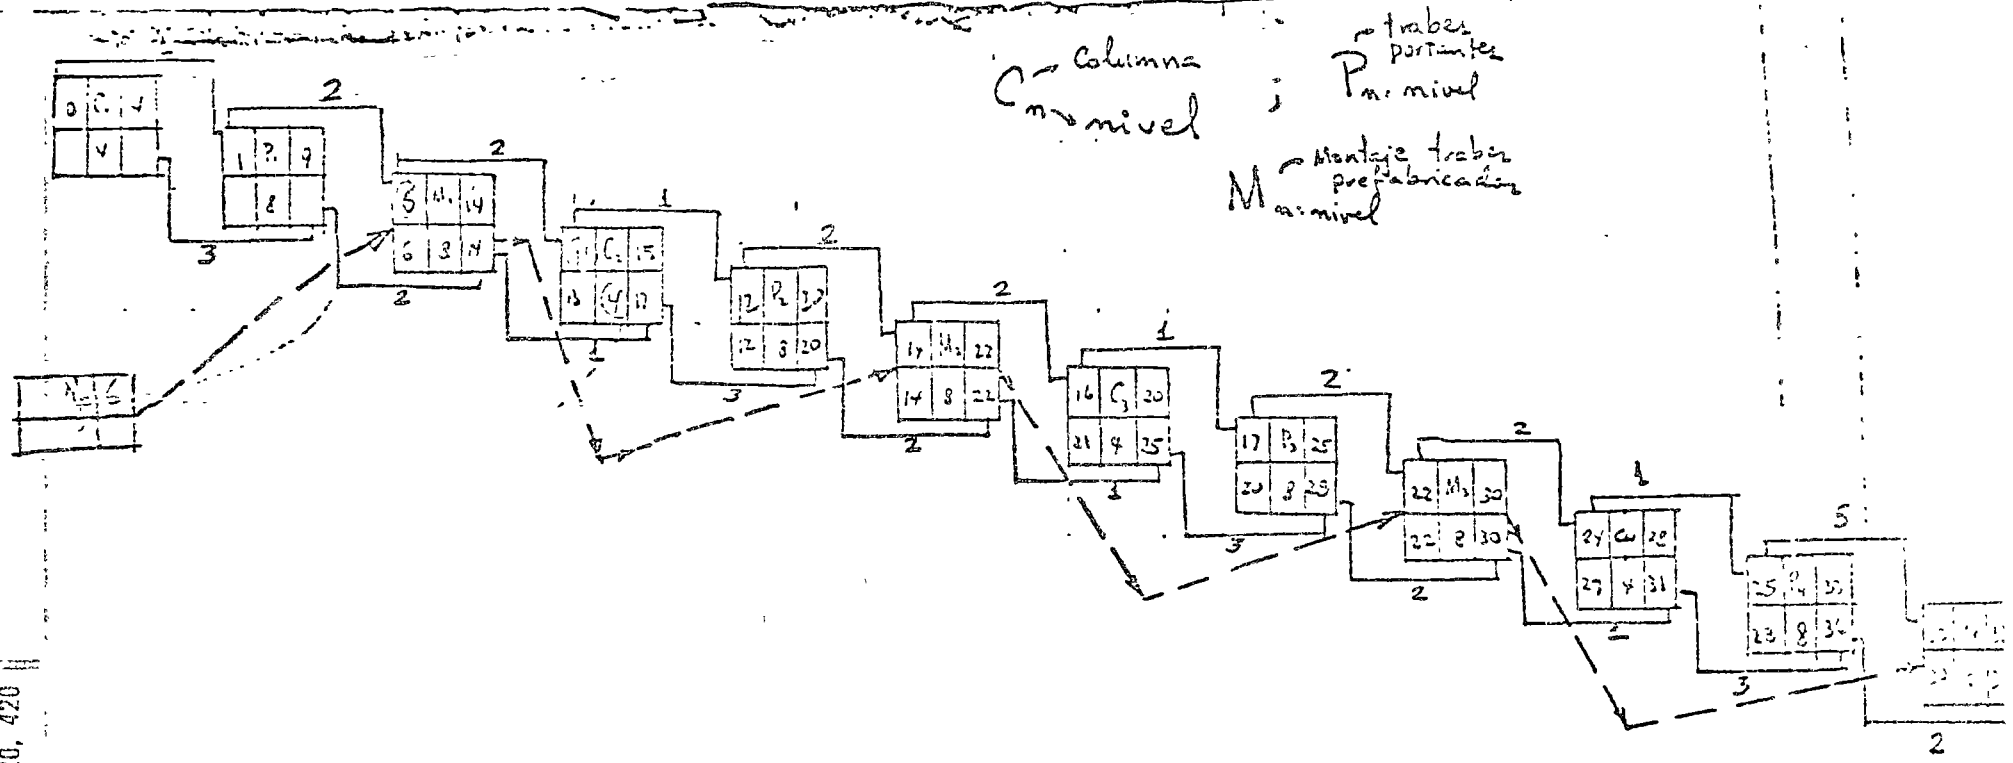 C → columna
n → nivel
;
P → trabes portantes
n: nivel
M → Montaje trabes prefabricadas
n: nivel
2
3
1 P₁ 9
8
2
2
M₁ 14
6 8 14
2
1
C₂ 15
4
1
3
12 P₂ 20
12 8 20
2
2
14 M₂ 22
14 8 22
2
1
16 C₃ 20
21 4 25
1
3
17 P₃ 25
20 8 28
2
2
22 M₃ 30
22 8 30
2
1
24 C₄ 28
27 4 31
1
3
25 P₄ 33
8
5
2
420